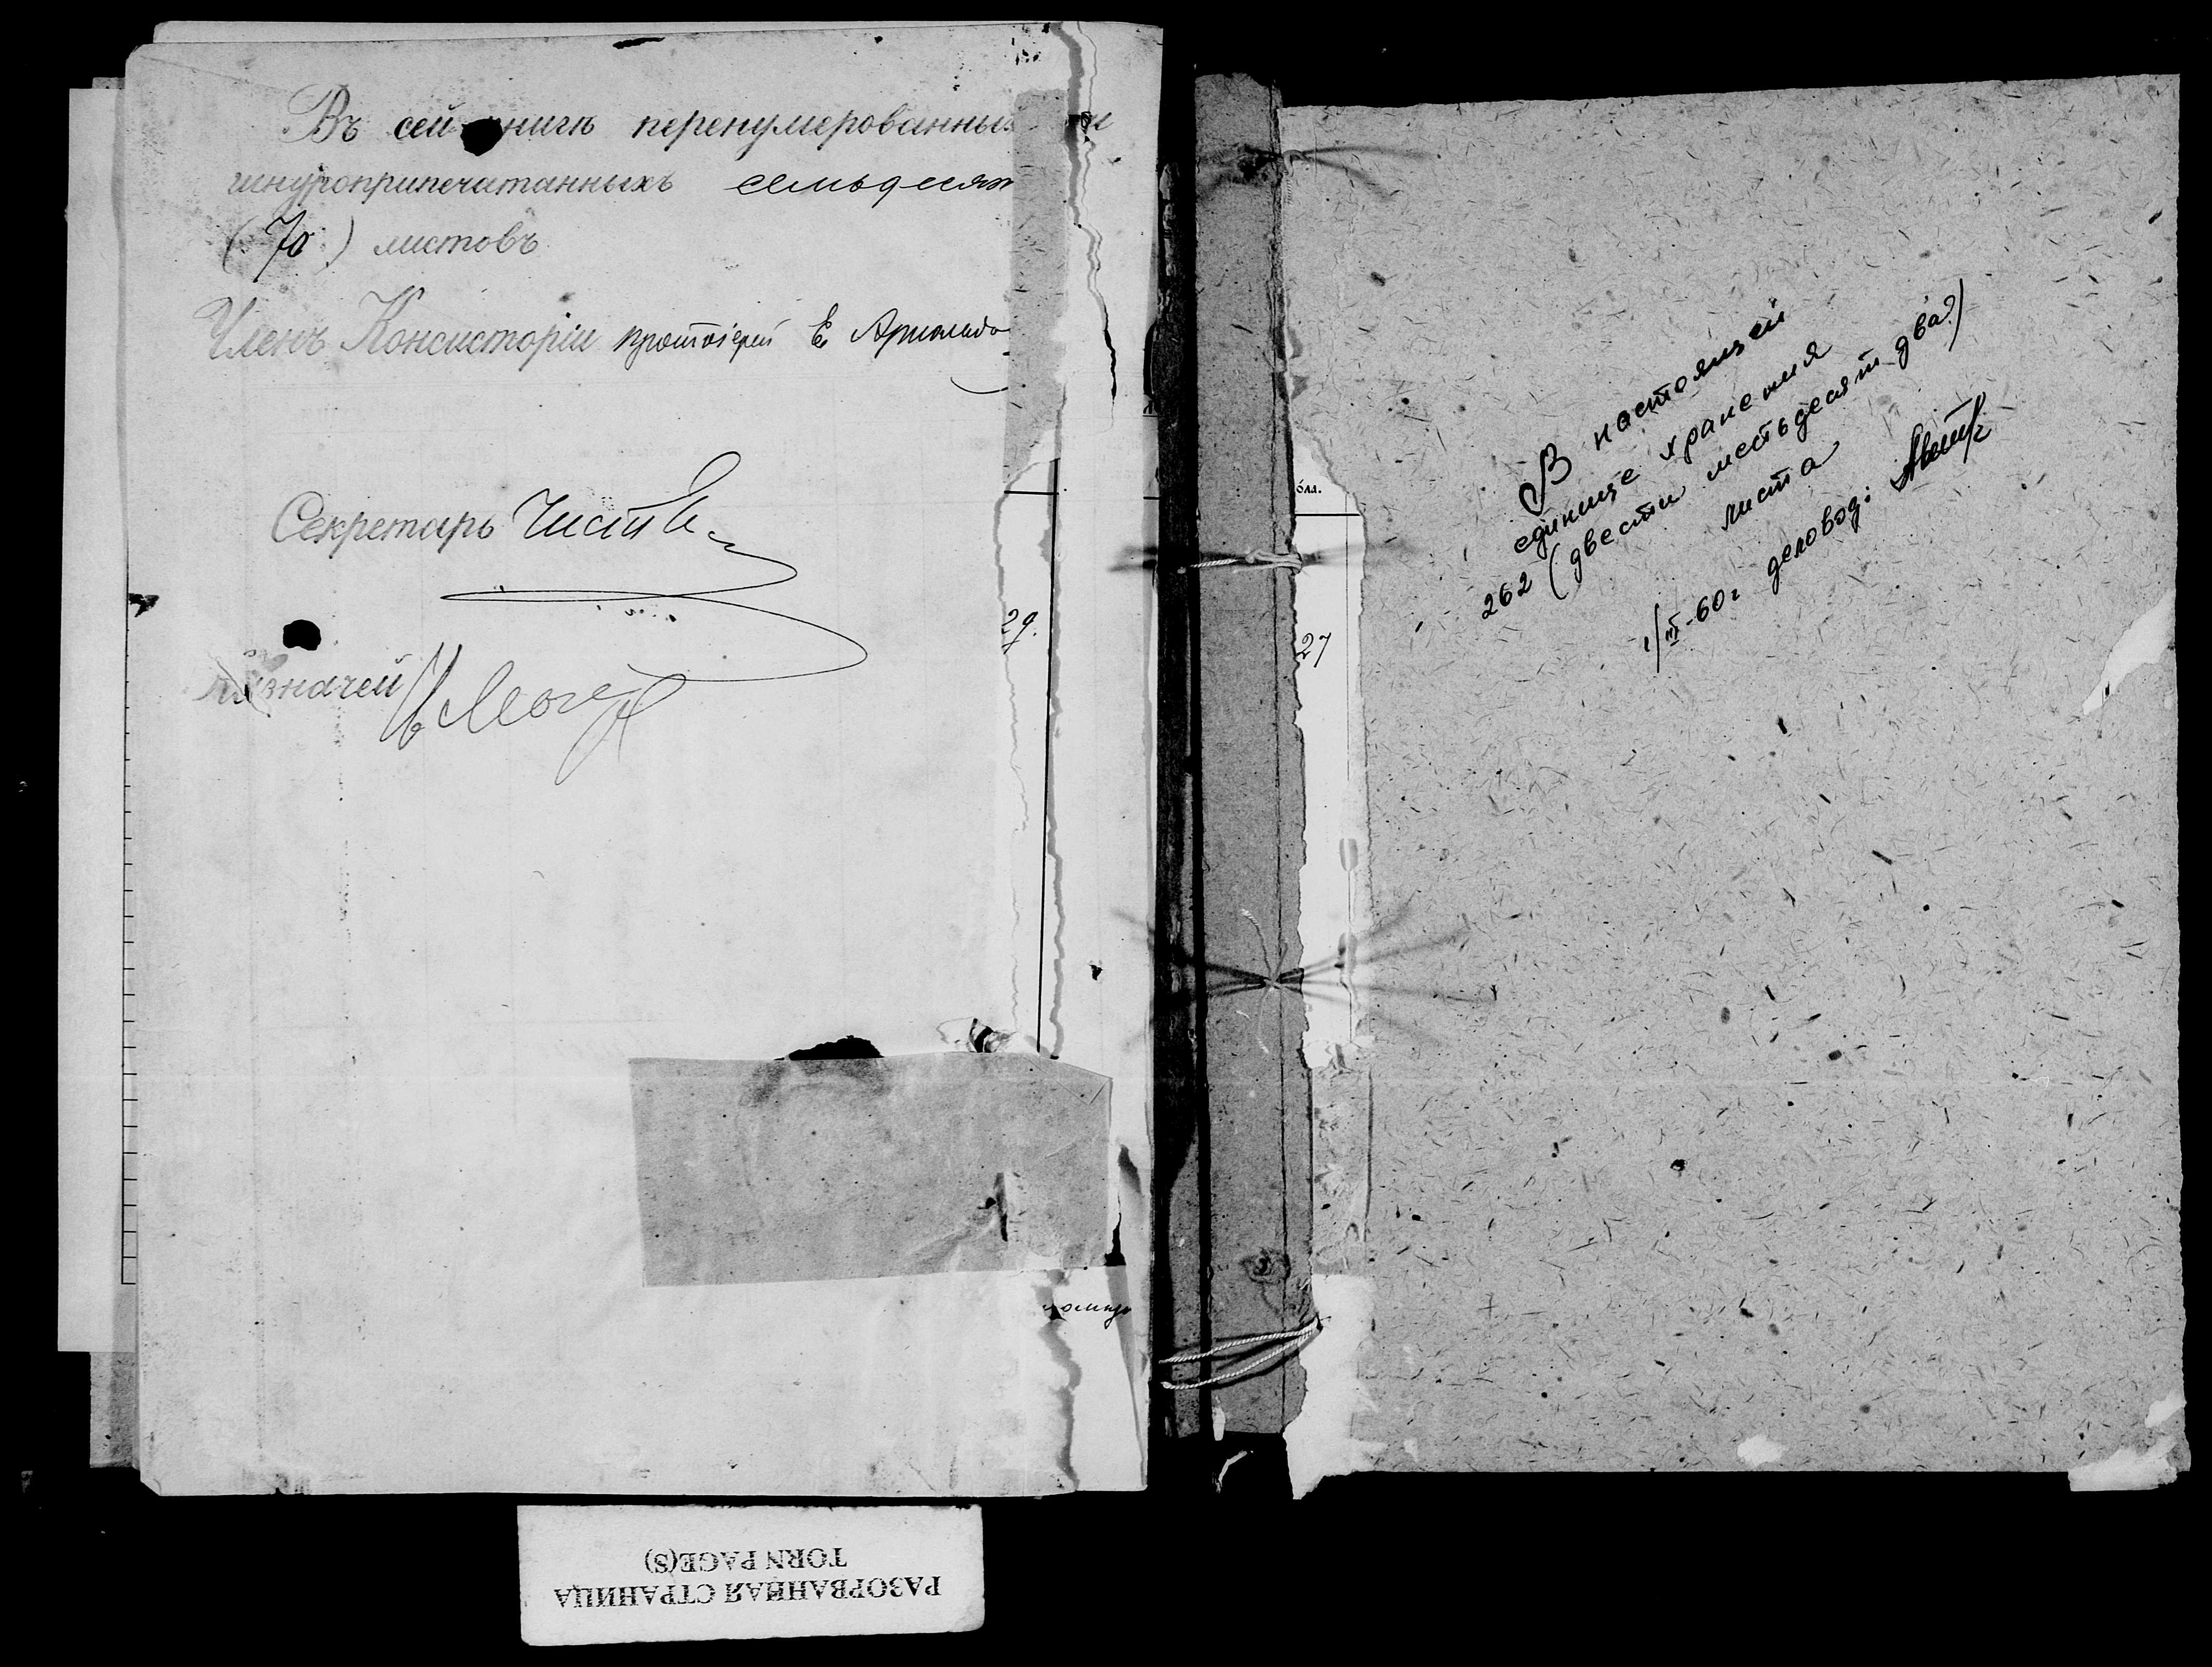 Въ сей книгѣ перенумерованныхъ и
шнуроприпечатанныхъ семьдесят
(70) листовъ
Членъ Консисторіи протоіерей Е
Секретарь
Казначей
29.
бла.
27
В настоящей
единице хранения
262 (двести шестьдесят два)
листа
1/III-60г деловод:
РАЗОРВАННАЯ СТРАНИЦА
TORN PAGE(S)